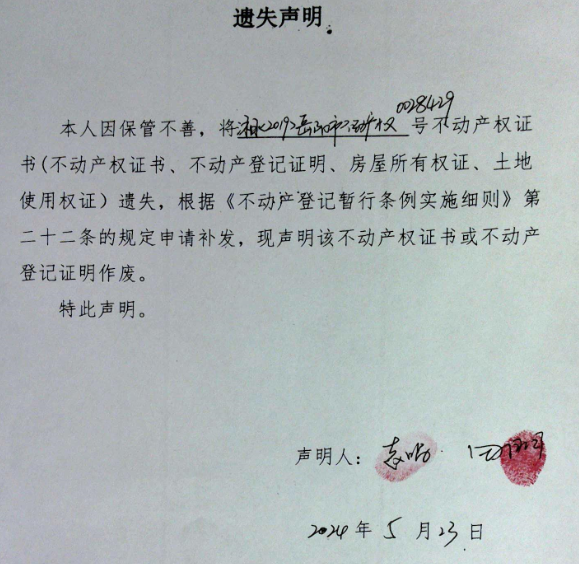 遗失声明
本人因保管不善，将湘(2019)岳阳市不动产权0028429号不动产权证
书(不动产权证书、不动产登记证明、房屋所有权证、土地
使用权证）遗失，根据《不动产登记暂行条例实施细则》第
二十二条的规定申请补发，现声明该不动产权证书或不动产
登记证明作废。
特此声明。
声明人：
2024年5月23日